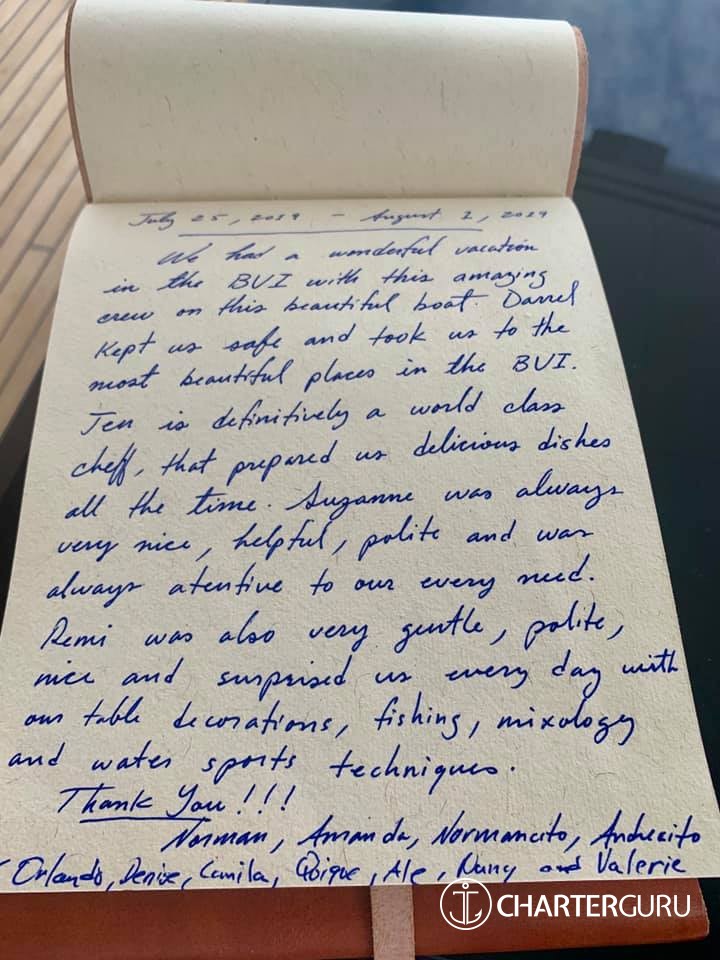 July 25, 2019 - August 1, 2019
We had a wonderful vacation
in the BVI with this amazing
crew on this beautiful boat. Darrel
Kept us safe and took us to the
most beautiful places in the BVI.
Jen is definitively a world class
cheff, that prepared us delicious dishes
all the time. Suzanne was always
very nice, helpful, polite and was
always atentive to our every need.
Remi was also very gentle, polite,
nice and surprised us every day with
our table decorations, fishing, mixology
and water sports techniques.
Thank You!!!
Norman, Amanda, Normancito, Andrecito
Orlando, Denise, Camila, Ale, and Valerie
CHARTERGURU